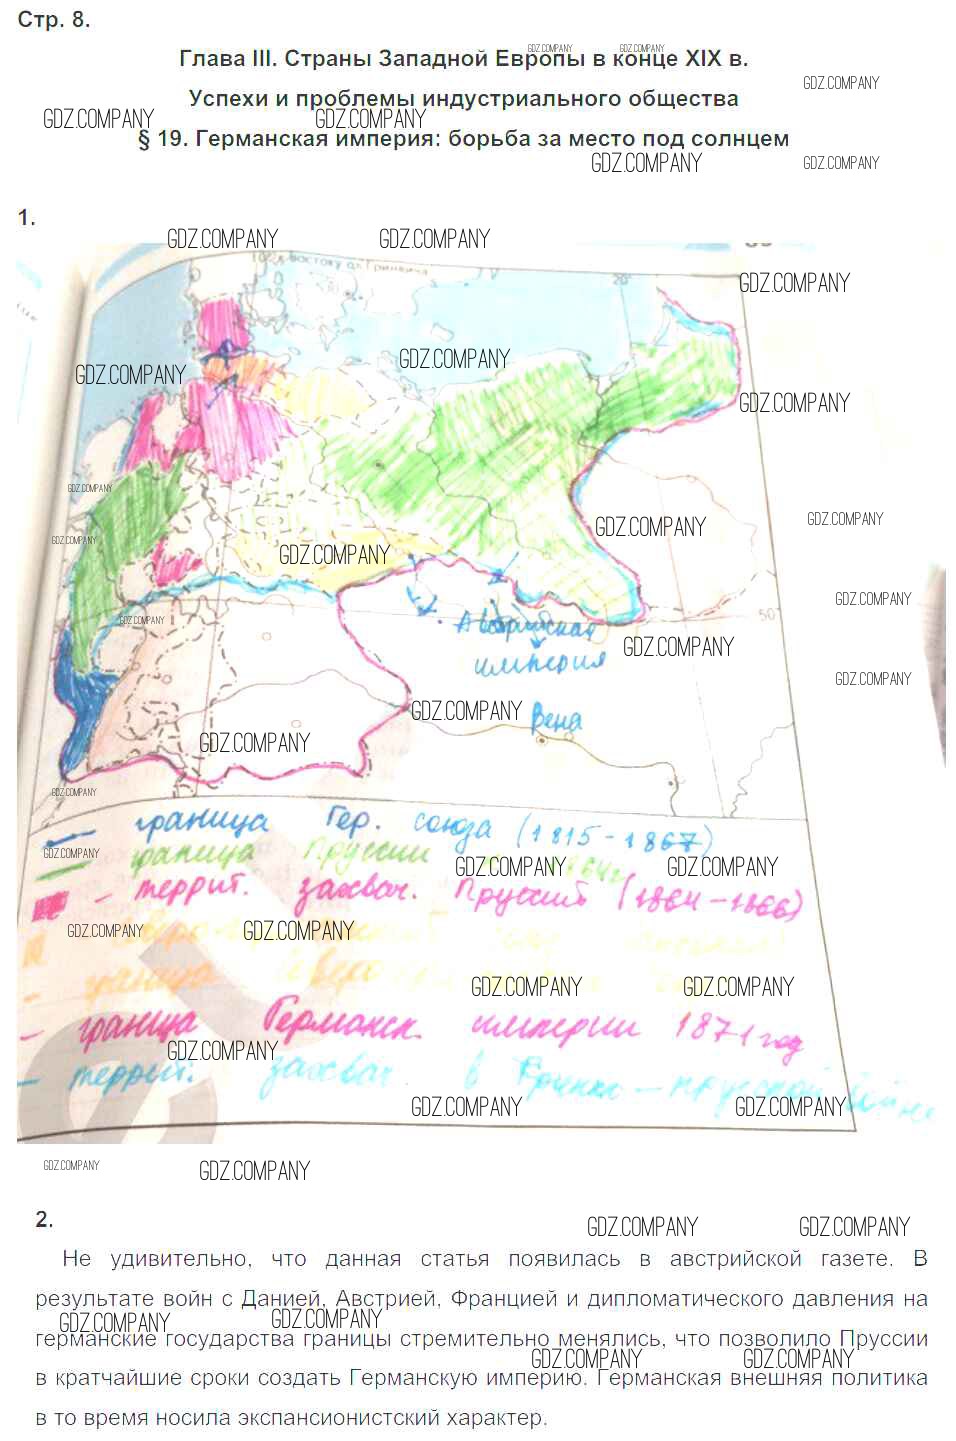 Стр. 8.
Глава III. Страны Западной Европы в конце XIX в.
Успехи и проблемы индустриального общества
§ 19. Германская империя: борьба за место под солнцем
1.
Австрийская
империя
Вена
50°
граница Гер. союза (1815-1867)
граница Пруссии 1864г
- террит. захвач. Пруссией (1864-1866)
граница
- граница Германск. империи 1871 год
- террит. захвач в Франко-прусской войне
2.
Не удивительно, что данная статья появилась в австрийской газете. В
результате войн с Данией, Австрией, Францией и дипломатического давления на
германские государства границы стремительно менялись, что позволило Пруссии
в кратчайшие сроки создать Германскую империю. Германская внешняя политика
в то время носила экспансионистский характер.
GDZ.COMPANY